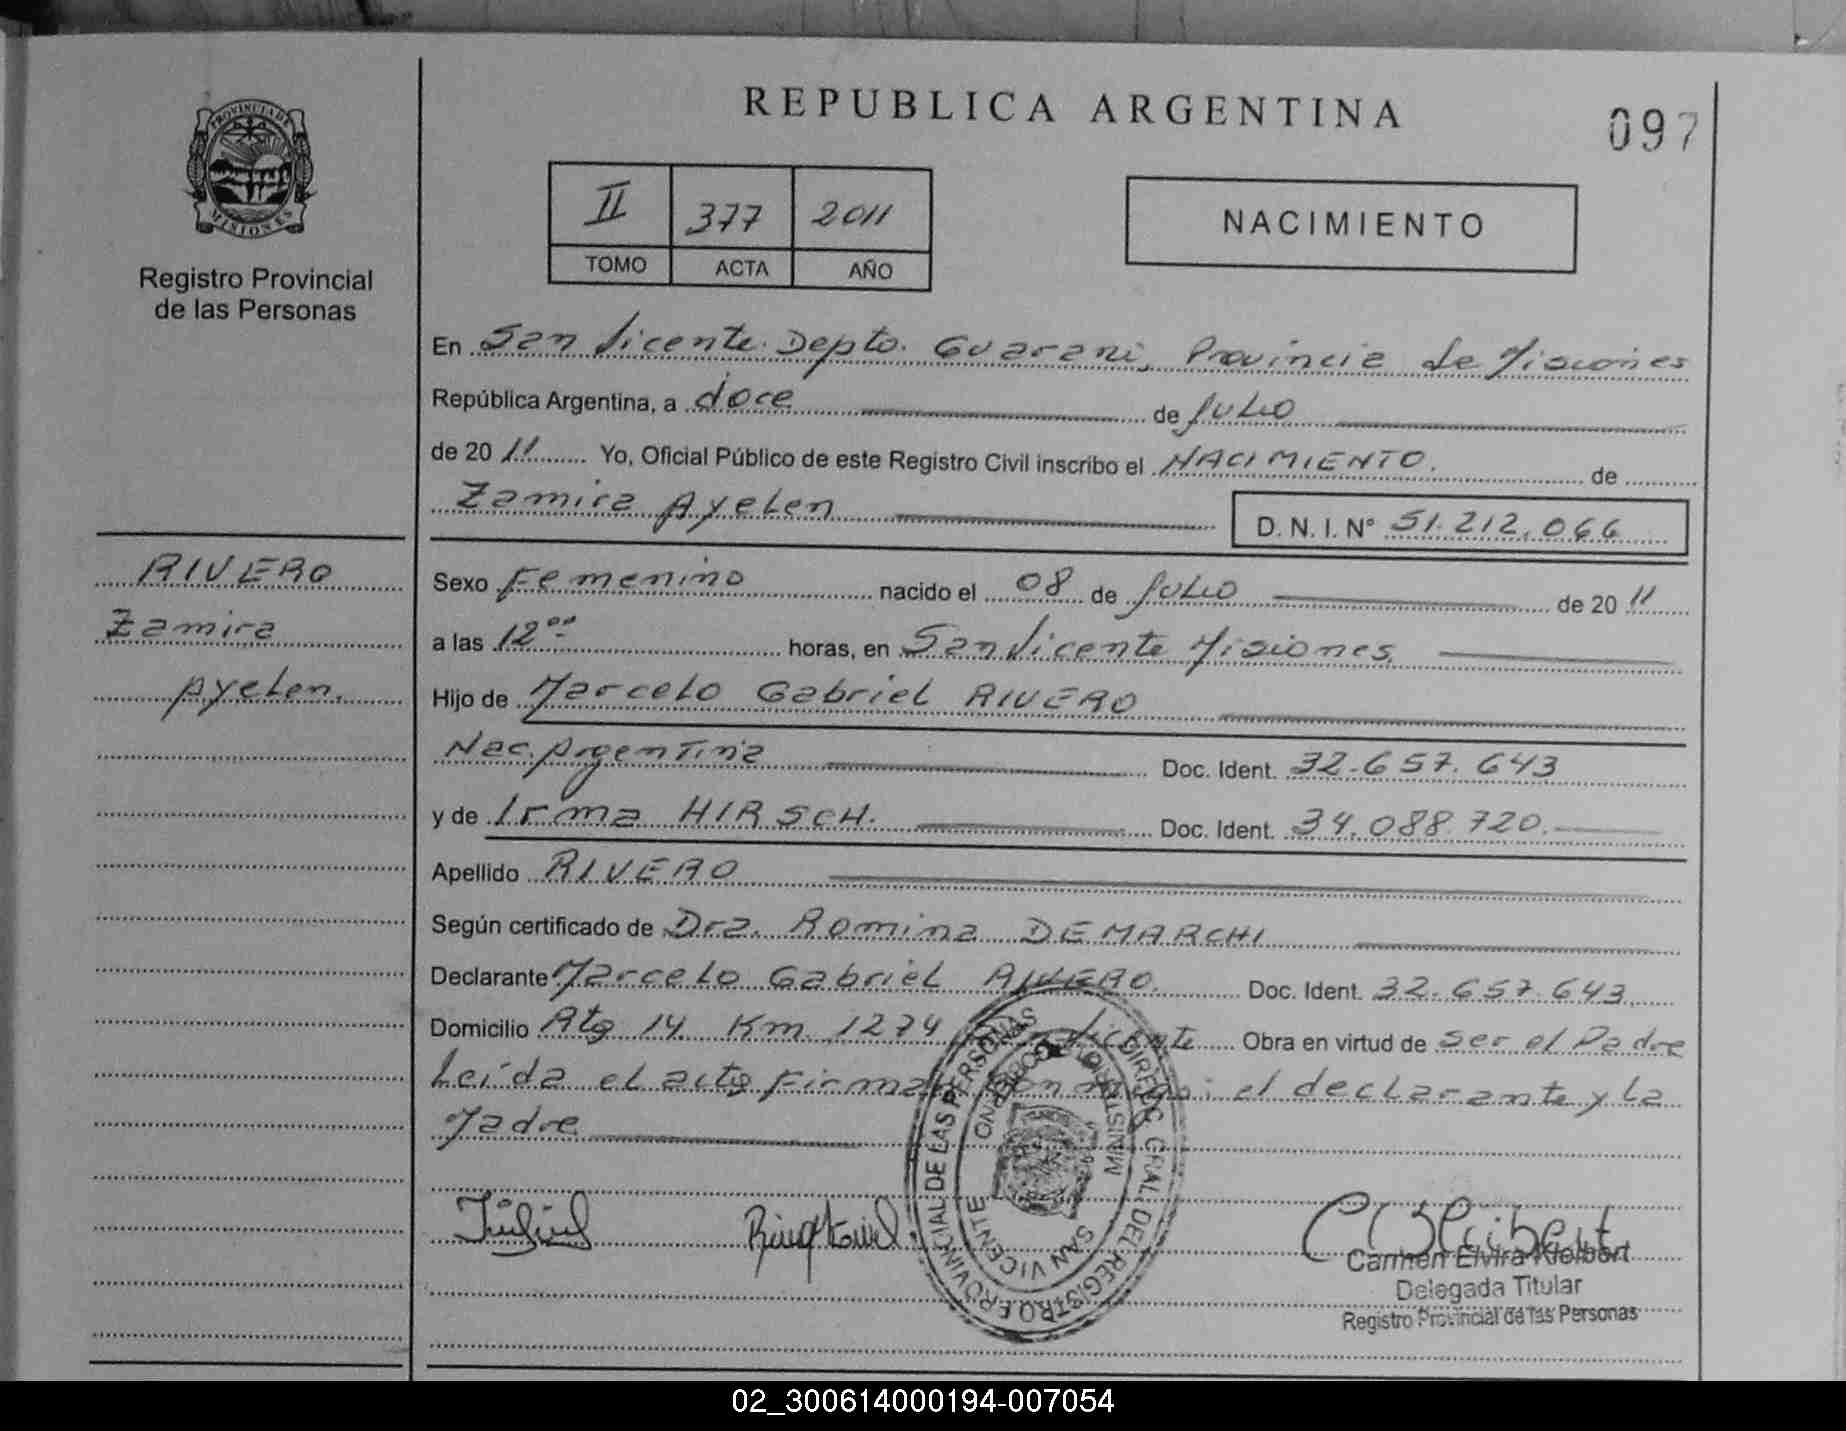 PROVINCIA DE
MISIONES
Registro Provincial
de las Personas
REPUBLICA ARGENTINA
097
II 377 2011
TOMO ACTA AÑO
NACIMIENTO
En San Vicente Depto. Guarani, Provincia de Misiones
República Argentina, a doce de Julio
de 20 11 Yo, Oficial Público de este Registro Civil inscribo el NACIMIENTO. de
Zamira Ayelen D. N. I. Nº 51.212.066
RIVERO
Zamira
Ayelen.
Sexo Femenino nacido el 08 de Julio de 20 11
a las 12 horas, en San Vicente Misiones
Hijo de Marcelo Gabriel RIVERO
Nac. Argentina Doc. Ident. 32.657.643
y de Irma HIRSCH. Doc. Ident. 34.088.720.
Apellido RIVERO
Según certificado de Dra. Romina DEMARCHI
Declarante Marcelo Gabriel RIVERO. Doc. Ident. 32.657.643
Domicilio Rta 14 Km 1274 Vicente Obra en virtud de ser el Padre
Leída el acta firman el declarante y la
Madre
DIREC. GRAL. DEL REGISTRO PROVINCIAL DE LAS PERSONAS
MINISTERIO GOBIERNO
SAN VICENTE
Carmen Elvira Kleibert
Delegada Titular
Registro Provincial de las Personas
02_300614000194-007054